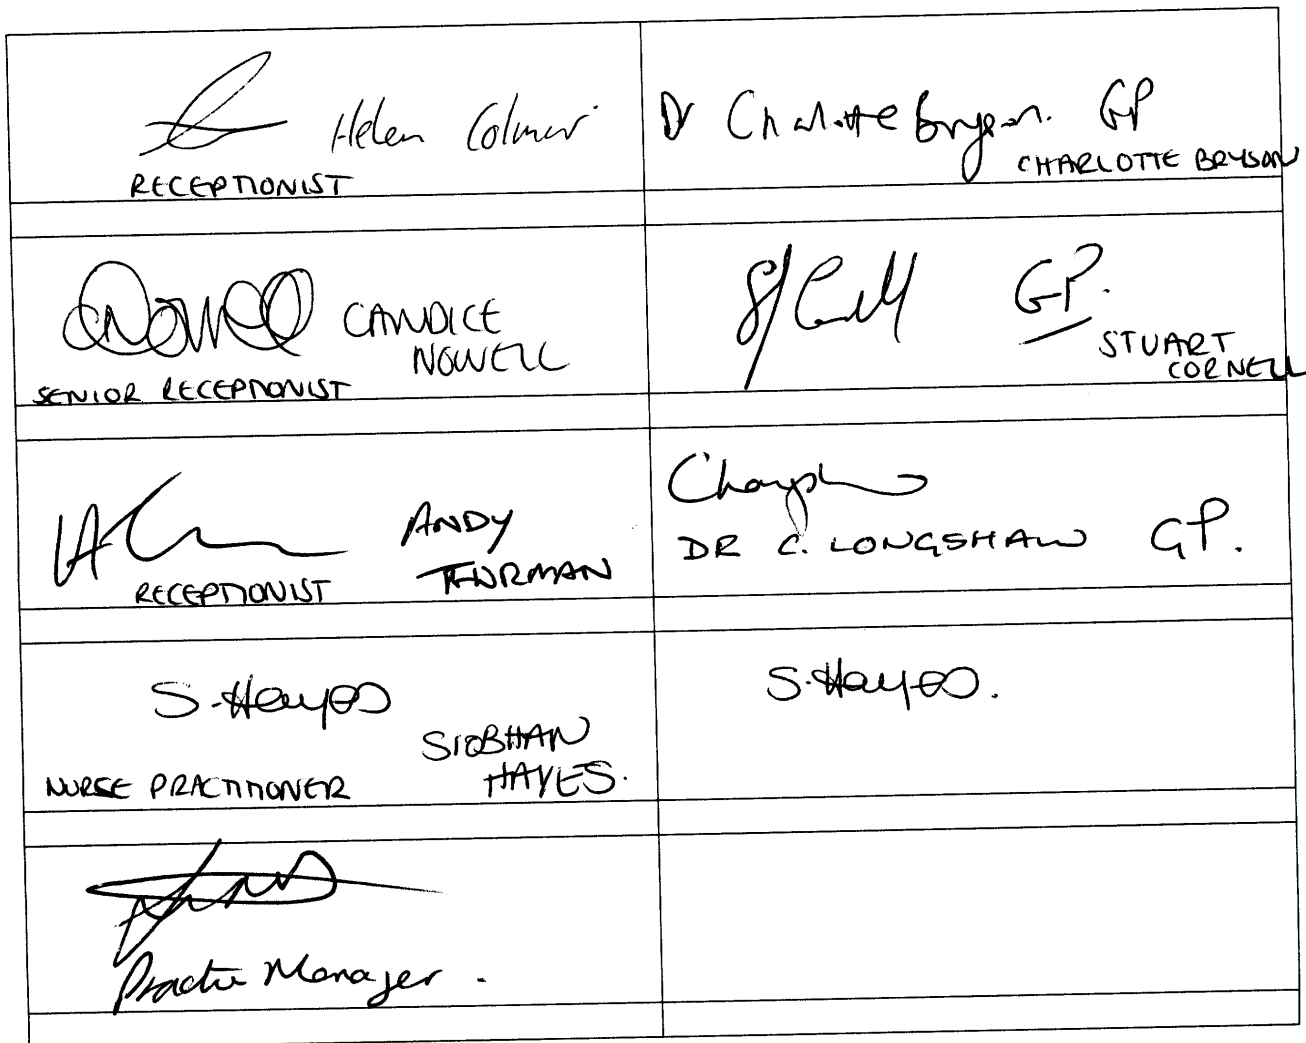 Helen Colmer
RECEPTIONIST
Dr Charlotte Bryson. GP
CHARLOTTE BRYSON
CNowell CANDICE
NOWELL
SENIOR RECEPTIONIST
GP.
STUART
CORNELL
ANDY
THURMAN
RECEPTIONIST
DR C. LONGSHAW GP.
S. Hayes
SIOBHAN
HAYES.
NURSE PRACTITIONER
S. Hayes.
Practice Manager.